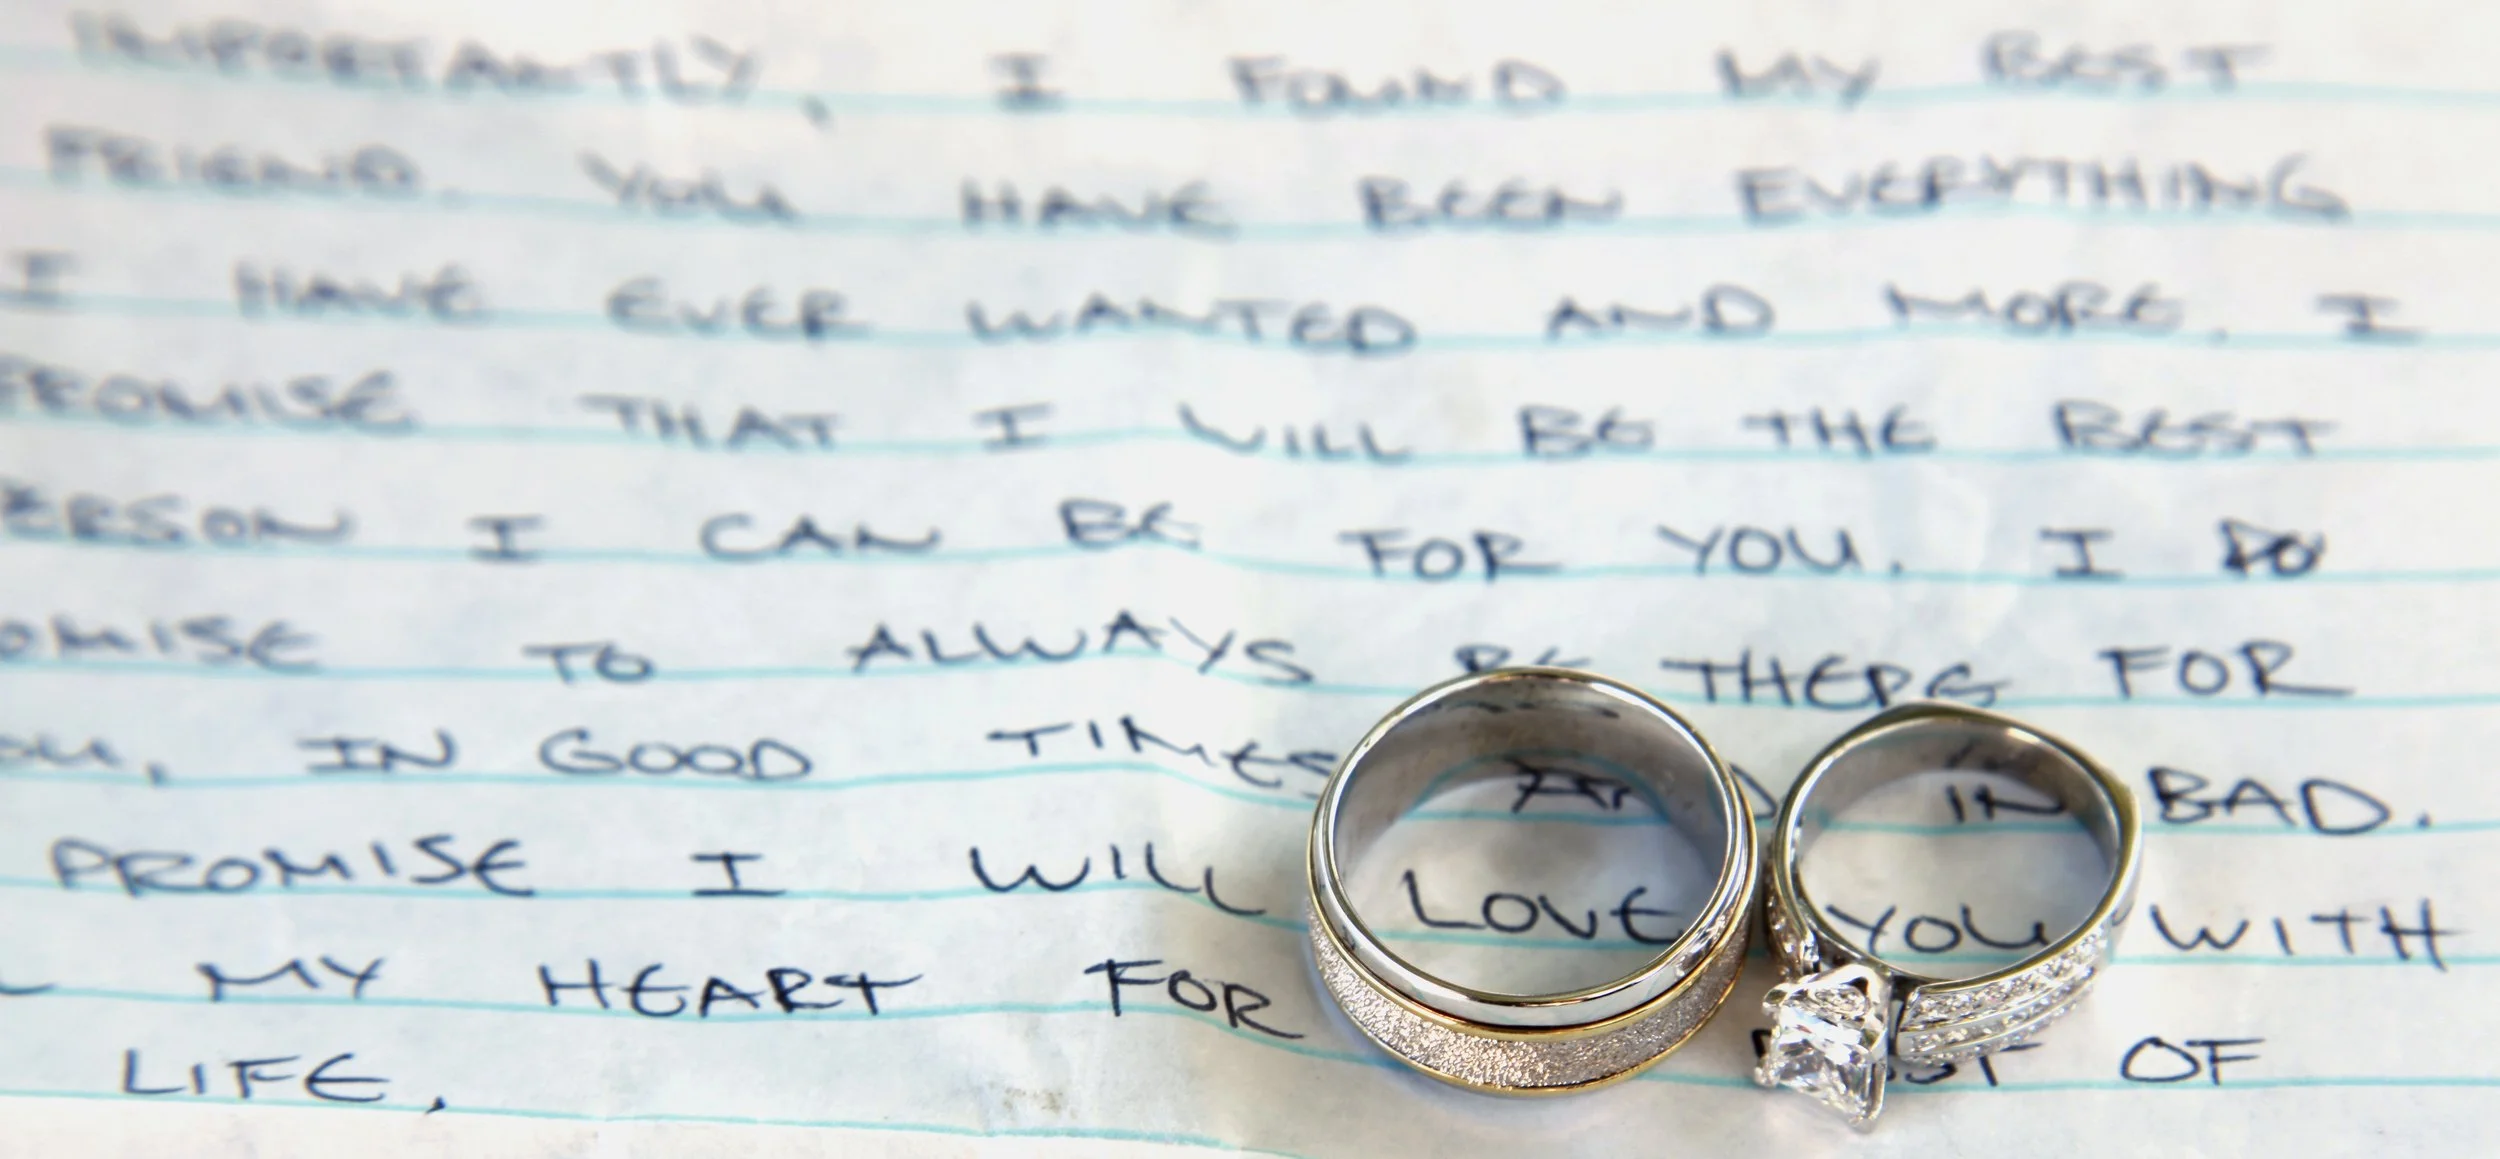 IMPORTANTLY, I FOUND MY BEST
FRIEND. YOU HAVE BEEN EVERYTHING
I HAVE EVER WANTED AND MORE. I
PROMISE THAT I WILL BE THE BEST
PERSON I CAN BE FOR YOU. I DO
OMISE TO ALWAYS BE THERE FOR
OU, IN GOOD TIMES AND IN BAD.
PROMISE I WILL LOVE YOU WITH
MY HEART FOR OF
LIFE.